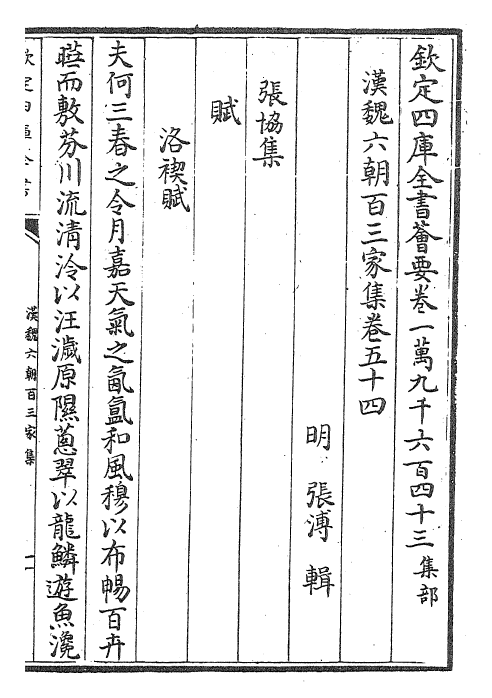 欽定四庫全書薈要卷一萬九千六百四十三 集部
漢魏六朝百三家集卷五十四
明 張溥 輯
張協集
賦
洛禊賦
夫何三春之令月嘉天氣之氤氲和風穆以布暢百卉
曄而敷芬川流清泠以汪濊原隰葱翠以龍鱗遊魚瀺
漢魏六朝百三家集
一